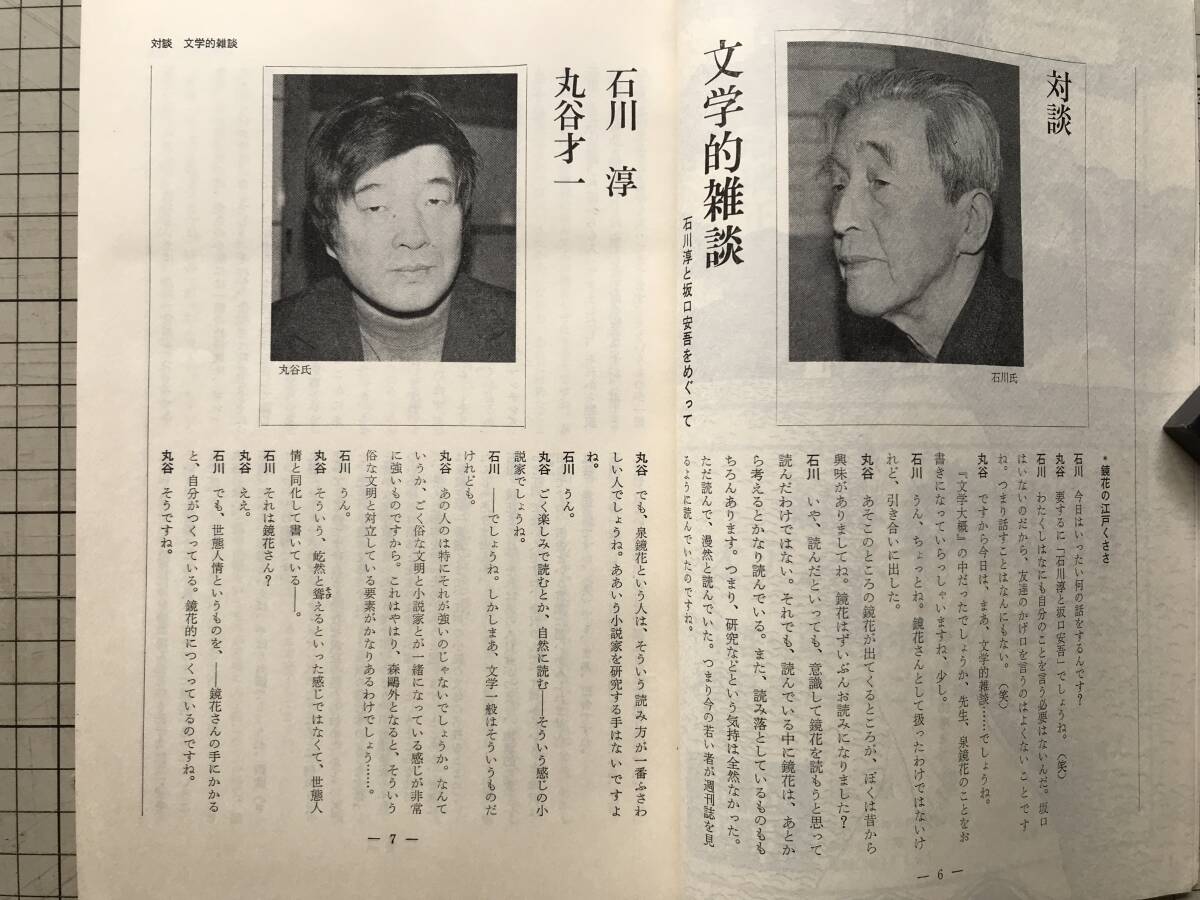 対談
文学的雑談
石川淳と坂口安吾をめぐって
石川氏
*鏡花の江戸くささ
石川　今日はいったい何の話をするんです?
丸谷　要するに「石川淳と坂口安吾」でしょうね。(笑)
石川　わたくしはなにも自分のことを言う必要はないんだ。坂口
はいないのだから、友達のかげ口を言うのはよくないことです
ね。つまり話すことはなんにもない。(笑)
丸谷　ですから今日は、まあ、文学的雑談……でしょうね。
『文学大概』の中だったでしょうか、先生、泉鏡花のことをお
書きになっていらっしゃいますね、少し。
石川　うん、ちょっとね。鏡花さんとして扱ったわけではないけ
れど、引き合いに出した。
丸谷　あそこのところの鏡花が出てくるところが、ぼくは昔から
興味がありましてね。鏡花はずいぶんお読みになりました?
石川　いや、読んだといっても、意識して鏡花を読もうと思って
読んだわけではない。それでも、読んでいる中に鏡花は、あとか
ら考えるとかなり読んでいる。また、読み落としているものもも
ちろんあります。つまり、研究などという気持は全然なかった。
ただ読んで、漫然と読んでいた。つまり今の若い者が週刊誌を見
るように読んでいたのですね。
— 6 —
対談　文学的雑談
石川　淳
丸谷才一
丸谷氏
丸谷　でも、泉鏡花という人は、そういう読み方が一番ふさわ
しい人でしょうね。ああいう小説家を研究する手はないですよ
ね。
石川　うん。
丸谷　ごく楽しみで読むとか、自然に読む——そういう感じの小
説家でしょうね。
石川　——でしょうね。しかしまあ、文学一般はそういうものだ
けれども。
丸谷　あの人のは特にそれが強いのじゃないでしょうか。なんて
いうか、ごく俗な文明と小説家とが一緒になっている感じが非常
に強いものですから。これはやはり、森鷗外となると、そういう
俗な文明と対立している要素がかなりあるわけでしょう……。
石川　うん。
丸谷　そういう、屹然と聳えるといった感じではなくて、世態人
情と同化して書いている——。
石川　それは鏡花さん?
丸谷　ええ。
石川　でも、世態人情というものを、——鏡花さんの手にかかる
と、自分がつくっている。鏡花的につくっているのですね。
丸谷　そうですね。
— 7 —